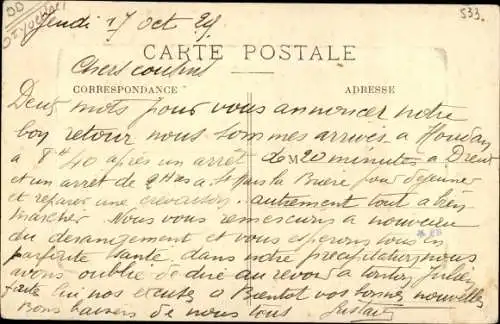 533.
Jeudi 17 oct 29
CARTE POSTALE
Chers cousins
CORRESPONDANCE
ADRESSE
Deux mots pour vous annoncer notre
bon retour nous sommes arrivés a Houdan
a 7H40 après un arrêt de 20 minutes a Dreux
et un arrêt de 2H a St la Bruère pour dejeuner
et reparer une crevaison. autrement tout a bien
marcher. Nous vous remercions a nouveau
du derangement et vous esperons tous en
parfaite santé. dans notre precipitation nous
avons oublié de dire au revoir a tonton Julien
faite lui nos excuses a Bientot vos bonnes nouvelles
Bons baisers de nous tous Gustave